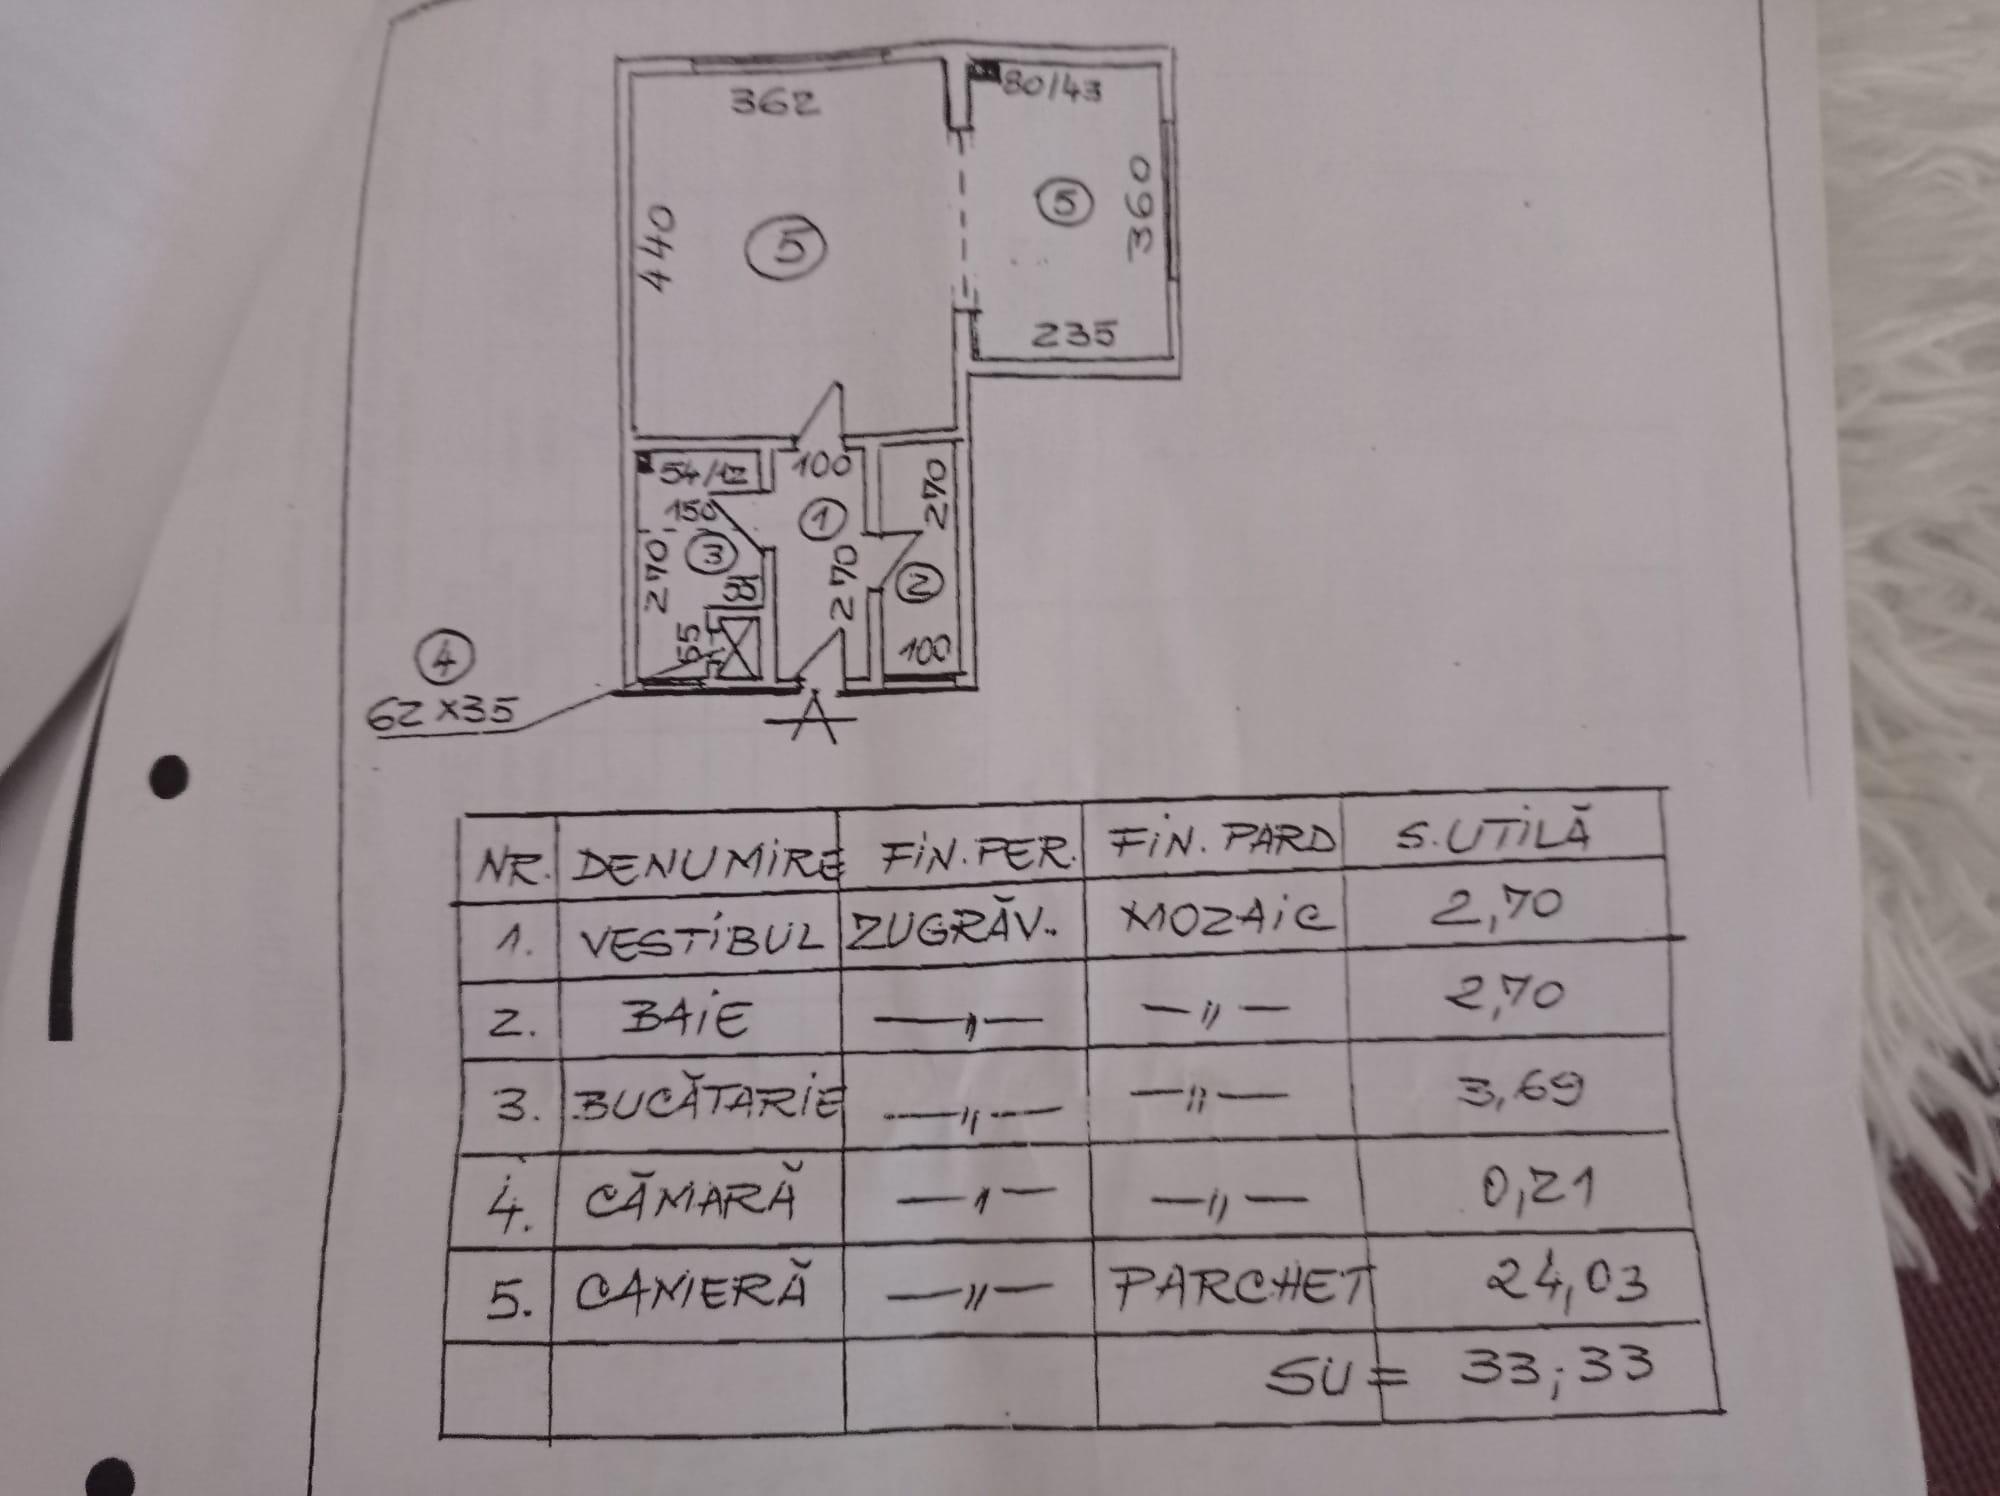 362
80/43
5
5
440
360
235
54/12
100
270
150
1
3
270
270
2
55
100
4
62x35
NR. DENUMIRE FIN.PER. FIN.PARD S.UTILĂ
1. VESTIBUL ZUGRĂV. MOZAIC 2,70
2. BAIE —„— —„— 2,70
3. BUCĂTARIE —„— —„— 3,69
4. CĂMARĂ —„— —„— 0,21
5. CAMERĂ —„— PARCHET 24,03
SU= 33,33